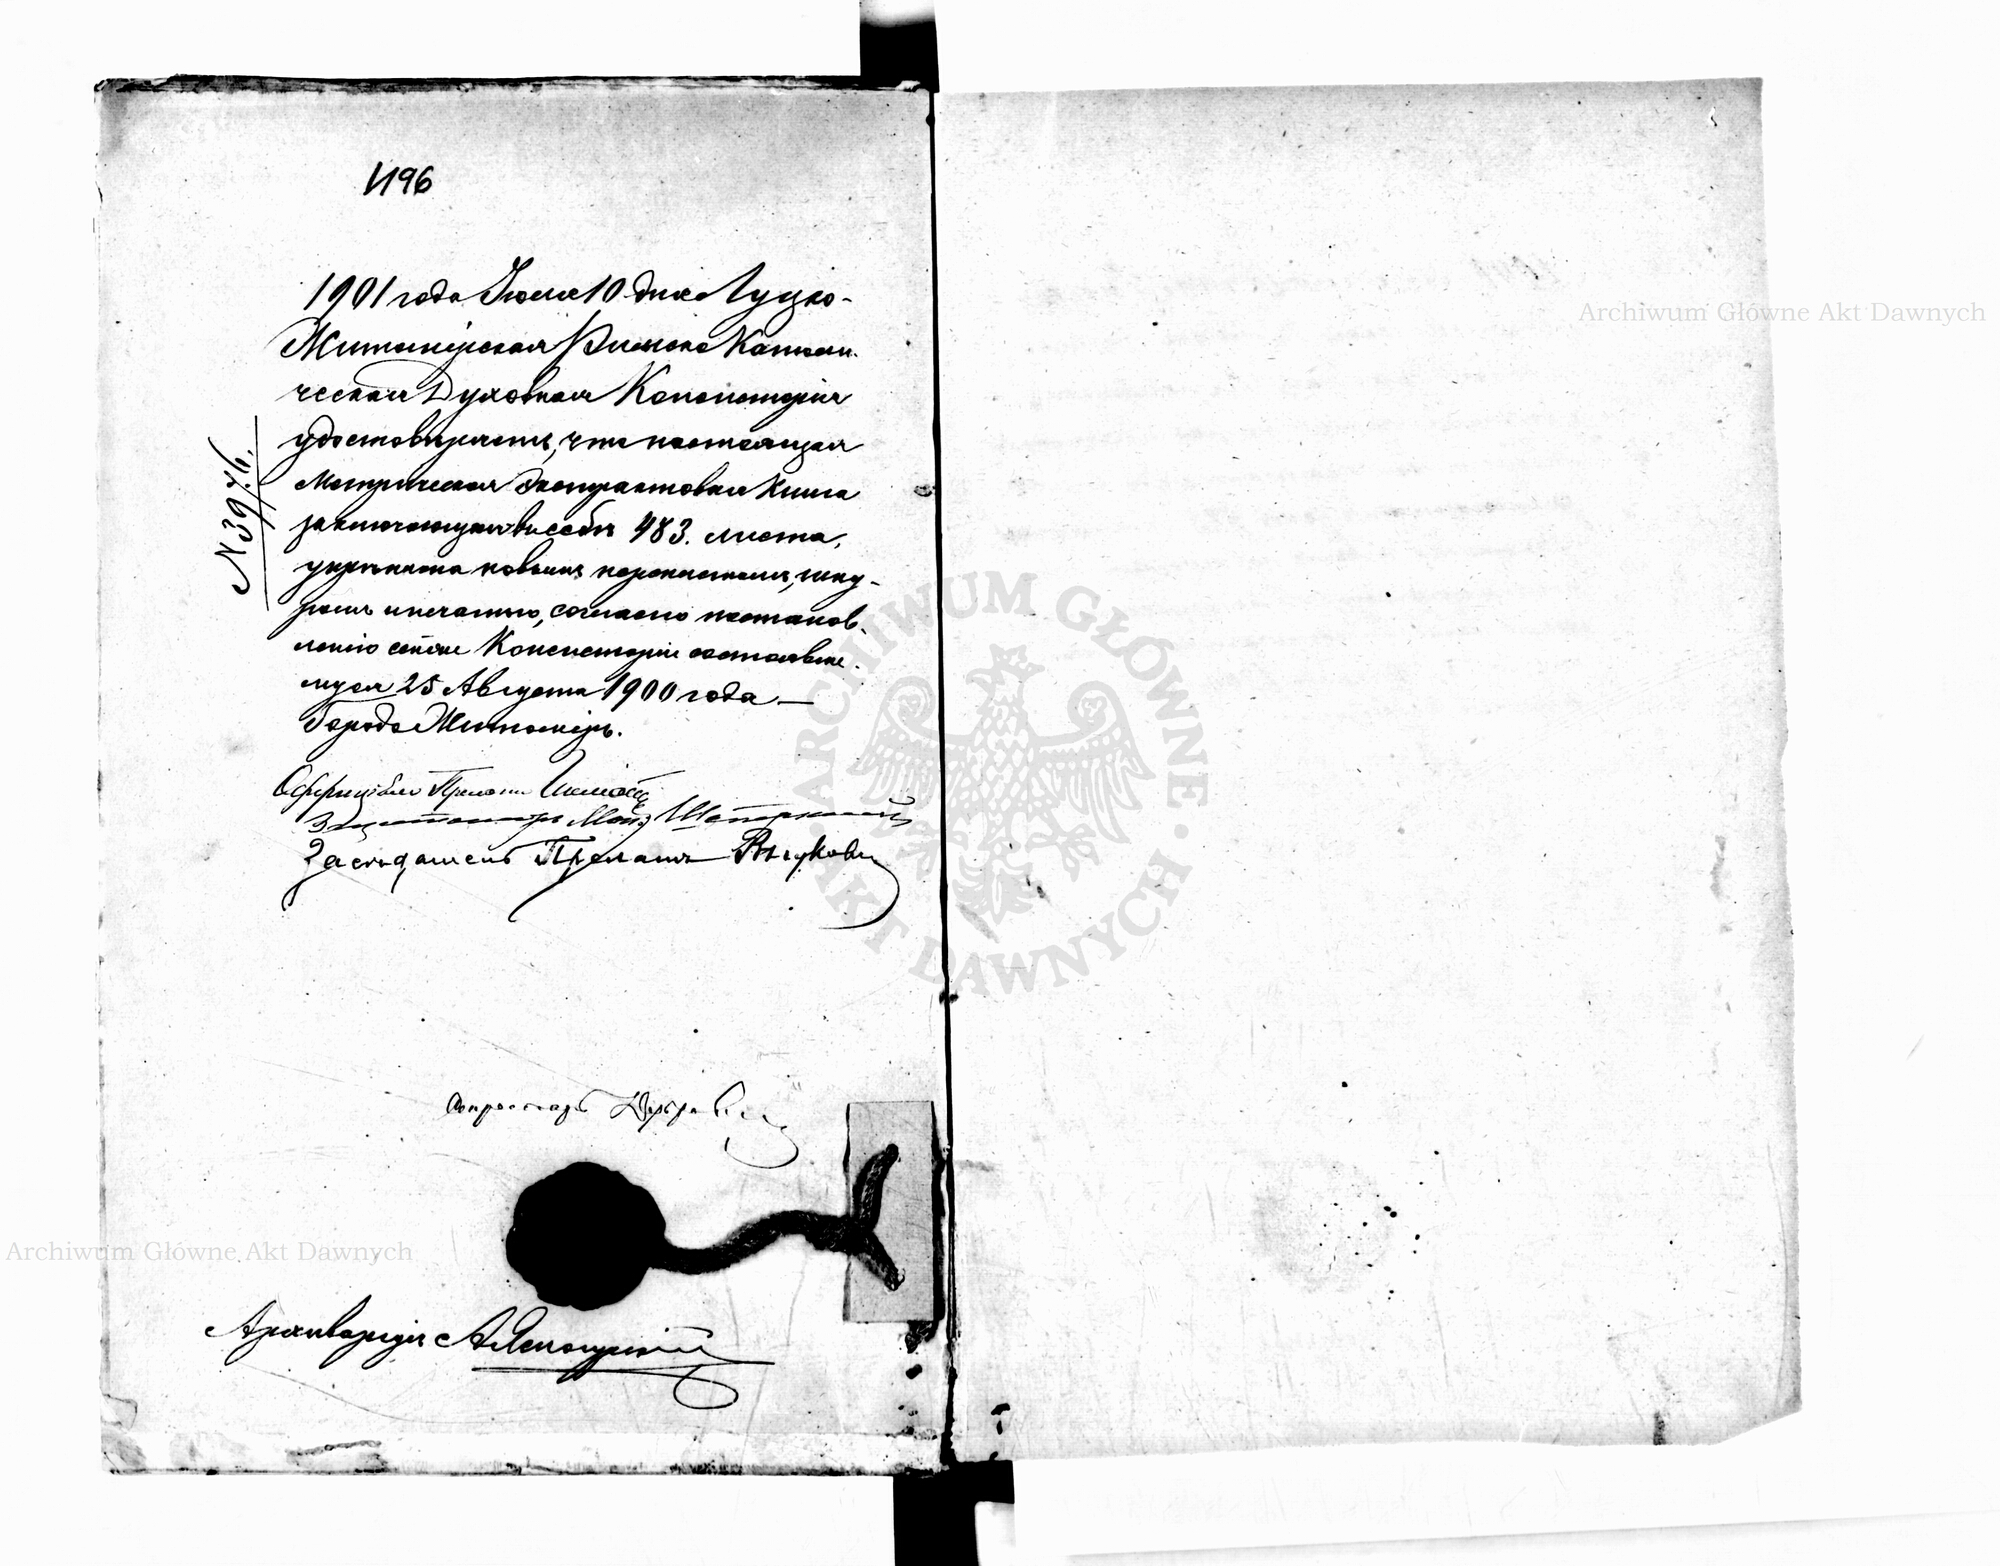 1196
1901 года Іюля 10 дня Луцко-
Житомірская Римско Католи-
ческая Духовная Консисторія
удостовѣряетъ, что настоящая
Метрическая Экстрактовая Книга
заключающая въ себѣ 483. листа,
укрѣплена новымъ, шну-
ромъ и печатью, согласно постанов-
ленію Консисторіи состоявше-
муся 25 Августа 1900 года —
Городъ Житоміръ.
N 3976.
Оффиціалъ Прелатъ
Засѣдатель Прелатъ
Секретарь
Архиваріусъ
ARCHIWUM GŁÓWNE AKT DAWNYCH
Archiwum Główne Akt Dawnych
Archiwum Główne Akt Dawnych